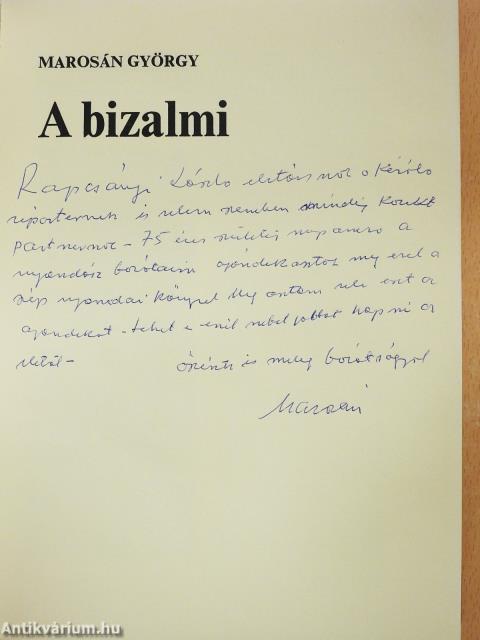 MAROSÁN GYÖRGY
A bizalmi
Rapcsányi László elvtársnak a kiváló
riporternek és velem szemben mindig korrekt
Partnernek – 75 éves születés napomra a
nyomdász barátaim ajándékoztak meg ezzel a
szép nyomdai könyvvel
ajándékot – Lehet e ennél jobbat kapni az
élettől –
őszinte és meleg barátsággal
Marosán
Antikvárium.hu